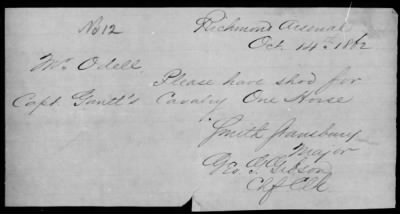 No 12
Richmond Arsenal
Oct. 14th 1862
Mr Odell.
Please have shod for
Capt. Gantt's Cavalry One Horse
Smith Stansbury
Major
Geo. T. Gibson
Chf Clk